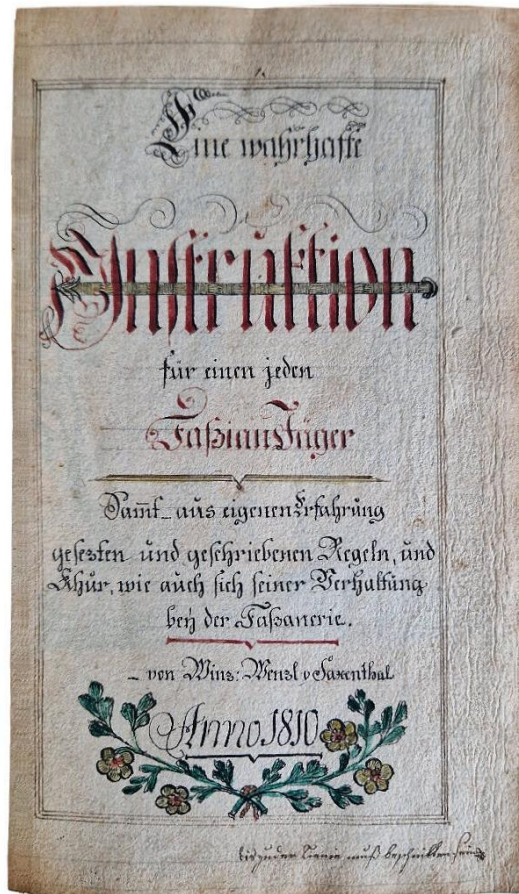 Eine wahrhafte
Instruktion
für einen jeden
Faßian Jäger
Sam̅t_ aus eigenen Erfahrung
gesezten und geschriebenen Regeln, und
Khur, wie auch sich seiner Verhaltung
beÿ der Faßanerie.
_ von Winz: Wenzl v Saxenthal
Anno 1810
bis zu der Linie muß beschnitten sein